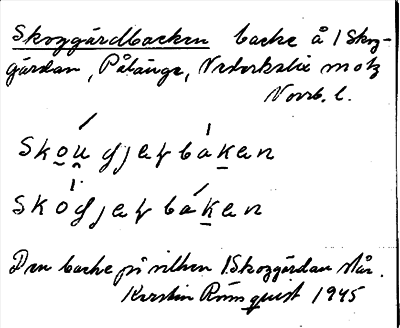 Skoggårdbacken backe å 1 Skog-
gårdan, Påläng, Nederkalix mot
Norrb. l.
Skou gjeṭ bàken
Skógjeṭ báken
Den backe på vilken 1 Skoggårdan står.
Kerstin Rönnquist 1945